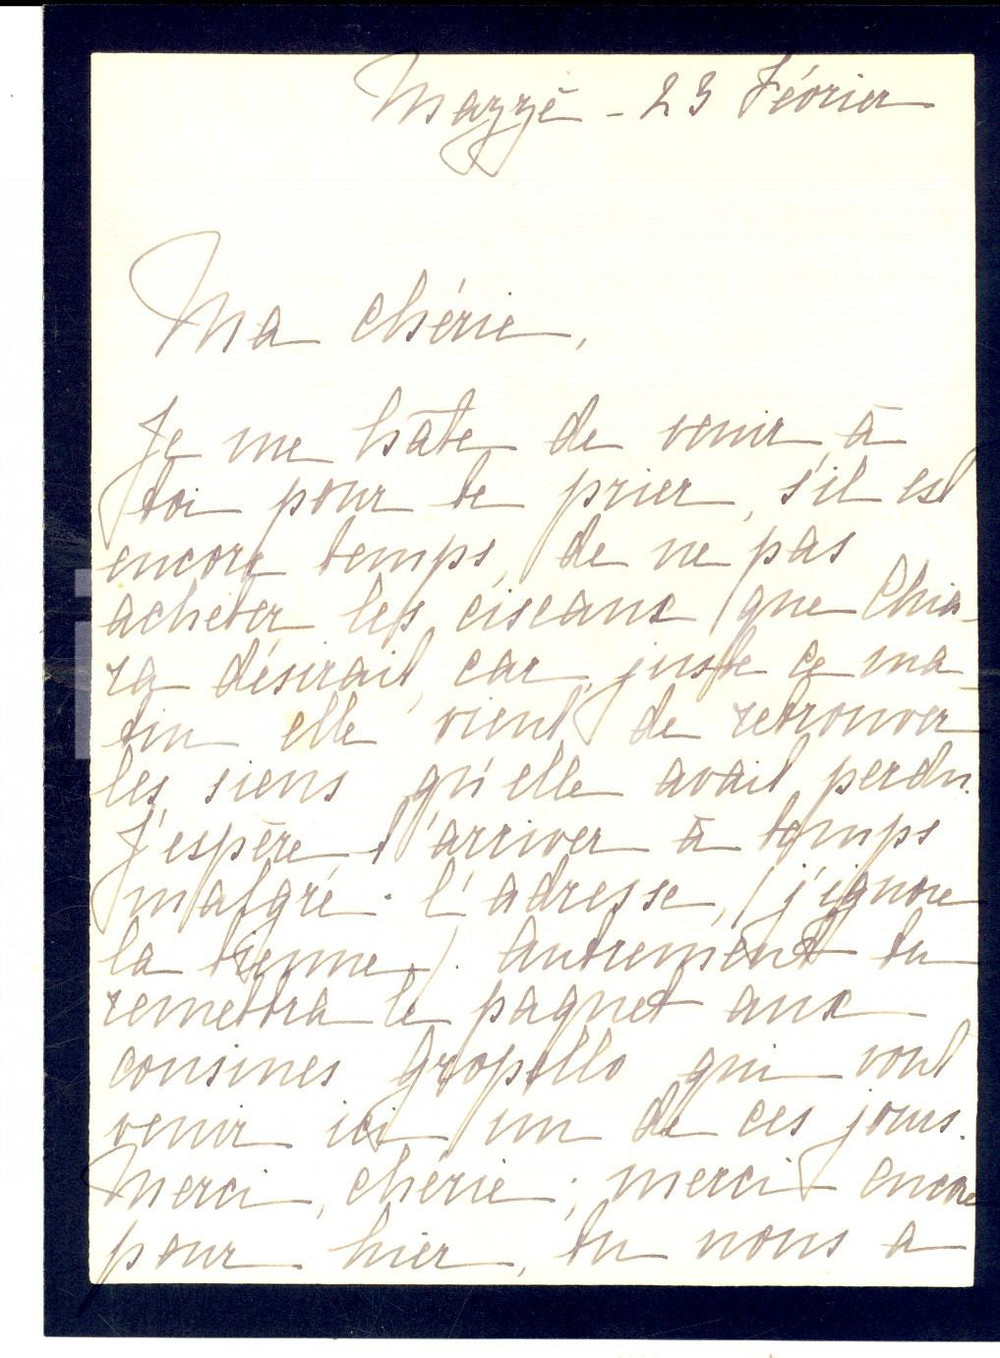 Mazzé - 23 Février
Ma chérie,
Je me hâte de venir à
toi pour te prier, s'il est
encore temps, de ne pas
acheter les ciseaux que Chia-
ra désirait, car juste ce ma-
tin elle vient de retrouver
les siens qu'elle avait perdu.
J'espère t'arriver à temps
malgré l'adresse, (j'ignore
la tienne). Autrement tu
remettra le paquet aux
cousines Gropello qui vont
venir ici un de ces jours.
Merci, chérie ; merci encore
pour hier, tu nous a